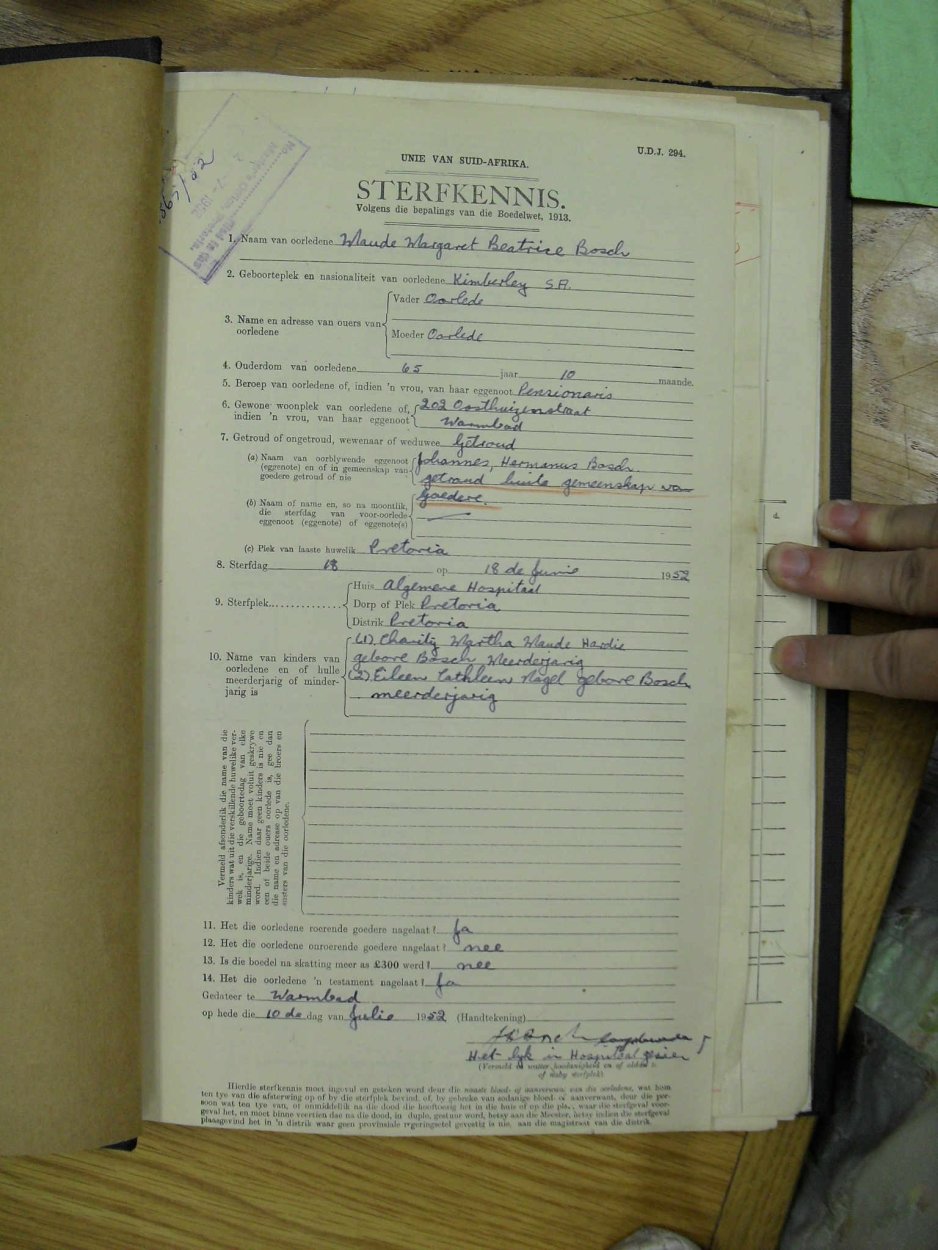 U.D.J. 294.
UNIE VAN SUID-AFRIKA.
STERFKENNIS.
Volgens die bepalings van die Boedelwet, 1913.
1. Naam van oorledene Maude Margaret Beatrice Bosch
2. Geboorteplek en nasionaliteit van oorledene Kimberley S.A.
3. Name en adresse van ouers van oorledene
Vader Oorlede
Moeder Oorlede
4. Ouderdom van oorledene 65 jaar 10 maande.
5. Beroep van oorledene of, indien 'n vrou, van haar eggenoot Pensionaris
6. Gewone woonplek van oorledene of, 202 Oosthuizenstraat
indien 'n vrou, van haar eggenoot Warmbad
7. Getroud of ongetroud, wewenaar of weduwee Getroud
(a) Naam van oorblywende eggenoot Johannes, Hermanus Bosch
(eggenote) en of in gemeenskap van getroud buite gemeenskap van
goedere getroud of nie goedere.
(b) Naam of name en, so na moontlik,
die sterfdag van voor-oorlede
eggenoot (eggenote) of eggenote(s)
(c) Plek van laaste huwelik Pretoria
8. Sterfdag 18 op 18 de Junie 1952
9. Sterfplek
Huis Algemene Hospitaal
Dorp of Plek Pretoria
Distrik Pretoria
10. Name van kinders van
oorledene en of hulle
meerderjarig of minder-
jarig is
(1) Charity Martha Maude Hardie
gebore Bosch, Meerderjarig
(2) Eileen Cathleen Nagel gebore Bosch
meerderjarig
Vermeld afsonderlik die name van die
kinders wat uit die verskillende huwelike ver-
wek is, en die geboortedag van elke
minderjarige. Name moet voluit geskrywe
word. Indien daar geen kinders is nie en
een of beide ouers oorlede is, gee dan
die name en adresse op van die broers en
susters van die oorledene.
11. Het die oorledene roerende goedere nagelaat? Ja
12. Het die oorledene onroerende goedere nagelaat? nee
13. Is die boedel na skatting meer as £300 werd? nee
14. Het die oorledene 'n testament nagelaat? Ja
Gedateer te Warmbad
op hede die 10 de dag van Julie 1952 (Handtekening)
Het lyk in Hospitaal gesien
Hierdie sterfkennis moet ingevul en geteken word deur die naaste bloed- of aanverwant van die oorledene, wat hom
ten tye van die afsterwing op of by die sterfplek bevind, of, by gebreke van sodanige bloed- of aanverwant, deur die per-
soon wat ten tye van, of onmiddellik na die dood die hooftoesig het in die huis of op die plek, waar die sterfgeval voor-
geval het, en moet binne veertien dae na die dood, in duplo, gestuur word, hetsy aan die Meester, hetsy indien die sterfgeval
plaasgevind het in 'n distrik waar geen provinsiale regeringsetel gevestig is nie, aan die magistraat van die distrik.